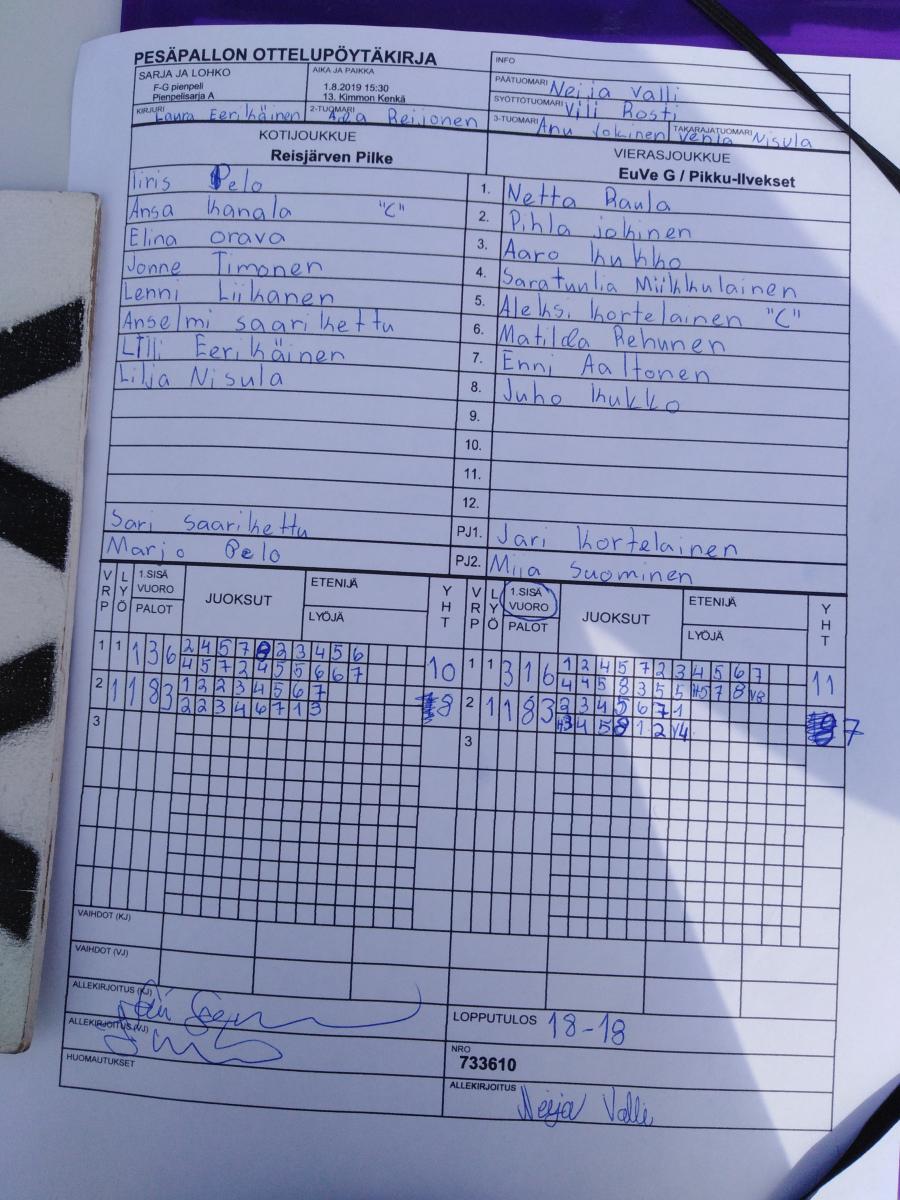 PESÄPALLON OTTELUPÖYTÄKIRJA
INFO
SARJA JA LOHKO
F-G pienpeli
Pienpelisarja A
AIKA JA PAIKKA
1.8.2019 15:30
13. Kimmon Kenkä
PÄÄTUOMARI Neija Valli
SYÖTTÖTUOMARI Vili Rosti
KIRJURI Laura Eerikäinen
2-TUOMARI Reijonen
3-TUOMARI Anu Jokinen
TAKARAJATUOMARI Venla Nisula
KOTIJOUKKUE
Reisjärven Pilke
VIERASJOUKKUE
EuVe G / Pikku-Ilvekset
Iiris Pelo 1. Netta Raula
Ansa Kanala "C" 2. Pihla jokinen
Elina orava 3. Aaro Kukko
Jonne Timonen 4. Saratuulia Miikkulainen
Lenni Liikanen 5. Aleksi Kortelainen "C"
Anselmi saarikettu 6. Matilda Rehunen
Lilli Eerikäinen 7. Enni Aaltonen
Lilja Nisula 8. Juho Kukko
9.
10.
11.
12.
Sari saarikettu PJ1. Jari Kortelainen
Marjo Pelo PJ2. Miia Suominen
VRP LYÖ 1.SISÄ VUORO PALOT JUOKSUT ETENIJÄ LYÖJÄ YHT
VRP LYÖ 1.SISÄ VUORO PALOT JUOKSUT ETENIJÄ LYÖJÄ YHT
1 1 1 3 6 2 4 5 7 8 2 3 4 5 6 10
4 5 7 2 4 5 5 6 6 7
2 1 1 8 3 1 2 2 3 4 5 6 7 8
2 2 3 4 6 7 1 3
3
1 1 3 1 6 1 2 4 5 7 2 3 4 5 6 7 11
4 4 5 8 3 5 5 7 8 V8
2 1 1 8 3 2 3 4 5 6 7 1 7
4 5 8 1 2 V4
3
VAIHDOT (KJ)
VAIHDOT (VJ)
ALLEKIRJOITUS (KJ)
ALLEKIRJOITUS (VJ)
HUOMAUTUKSET
LOPPUTULOS 18-18
NRO
733610
ALLEKIRJOITUS Neija Valli